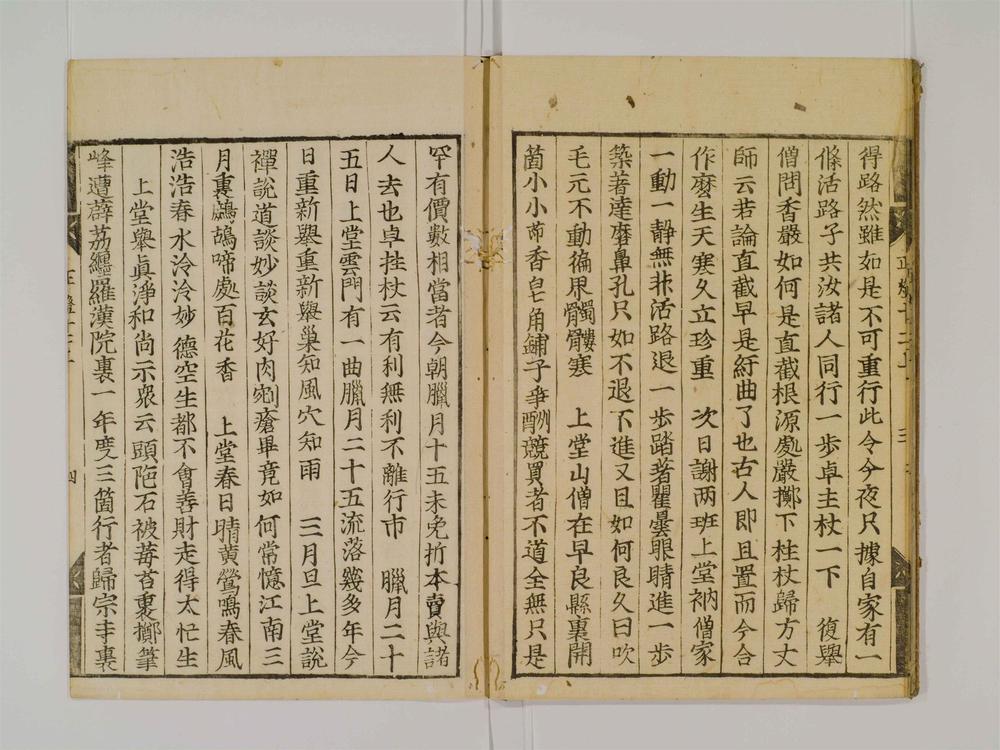 得路然雖如是不可重行此令今夜只據自家有一
條活路子共汝諸人同行一步卓主杖一下　復舉
僧問香嚴如何是直截根源處嚴擲下柱杖歸方丈
師云若論直截早是紆曲了也古人即且置而今合
作麼生天寒久立珍重　次日謝兩班上堂衲僧家
一動一靜無非活路退一步踏著瞿曇眼睛進一步
築著達磨鼻孔只如不退不進又且如何良久曰吹
毛元不動徧界髑髏寒　上堂山僧在早良縣裏開
箇小小芾香皀角鋪子爭酬競買者不道全無只是
罕有價數相當者今朝臘月十五未免折本賣與諸
人去也卓拄杖云有利無利不離行市　臘月二十
五日上堂雲門有一曲臘月二十五流落幾多年今
日重新舉重新舉巢知風穴知雨　三月旦上堂說
禪說道談妙談玄好肉剜瘡畢竟如何常憶江南三
月裏鷓鴣啼處百花香　上堂春日晴黃鶯鳴春風
浩浩春水泠泠妙德空生都不會善財走得太忙生
上堂舉眞淨和尚示衆云頭陁石被莓苔裹擲筆
峰遭薜荔纏羅漢院裏一年度三箇行者歸宗寺裏
四